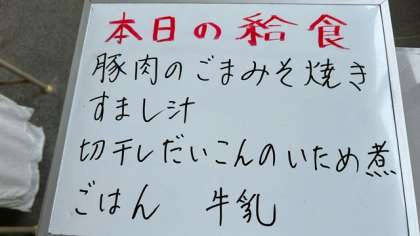 本日の給食
豚肉のごまみそ焼き
すまし汁
切干しだいこんのいため煮
ごはん 牛乳